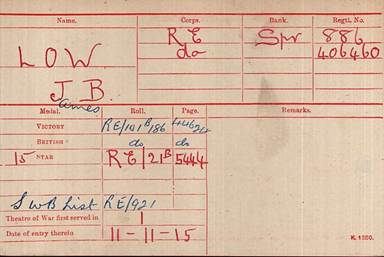 Name. Corps. Rank. Regtl. No.
LOW RE Spr 886
do 406460
J. B.
ames
Medal. Roll. Page. Remarks.
VICTORY RE/101B186
BRITISH do do
15 STAR RE/21B 5444
SWB List RE/921
Theatre of War first served in 1
Date of entry therein 11-11-15
K. 1380.